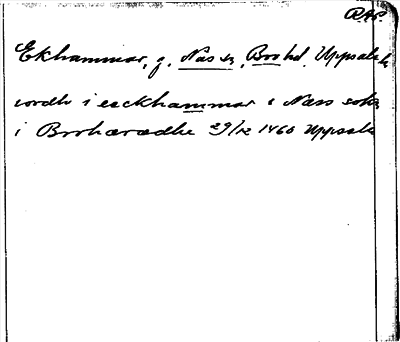 RAP.
Ekhammar, g. Näs sn, Bro hd, Uppsala l.
iordh i eeckhammar i Næss sokn
i Brohæradhe 29/12 1460 Uppsala